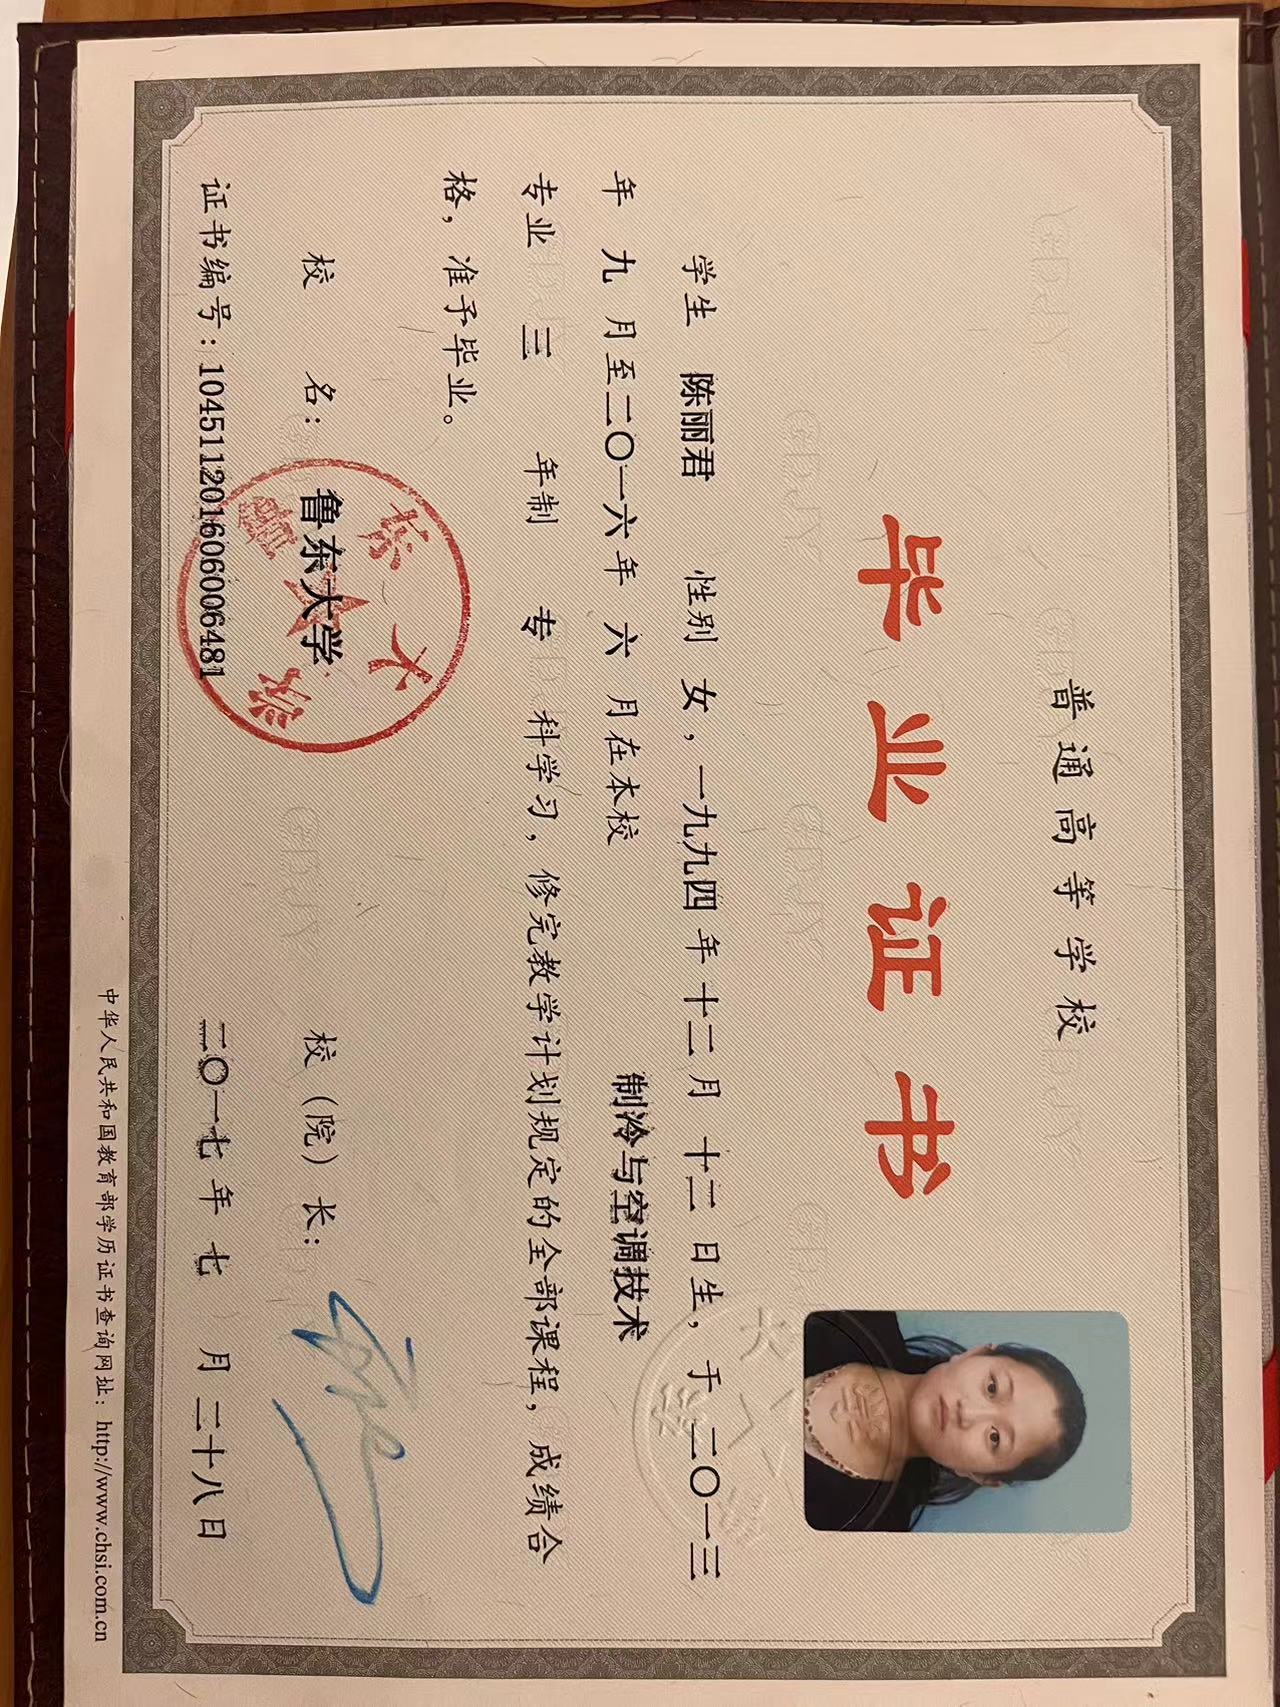 普通高等学校
毕业证书
学生 陈丽君 性别 女，一九九四年十二月十二日生，于二〇一三
年九月至二〇一六年六月在本校 制冷与空调技术
专业 三 年制 专 科学习，修完教学计划规定的全部课程，成绩合
格，准予毕业。
校 名：鲁东大学 校（院）长：
证书编号：104511201606006481 二〇一七年七月二十八日
中华人民共和国教育部学历证书查询网址：http://www.chsi.com.cn